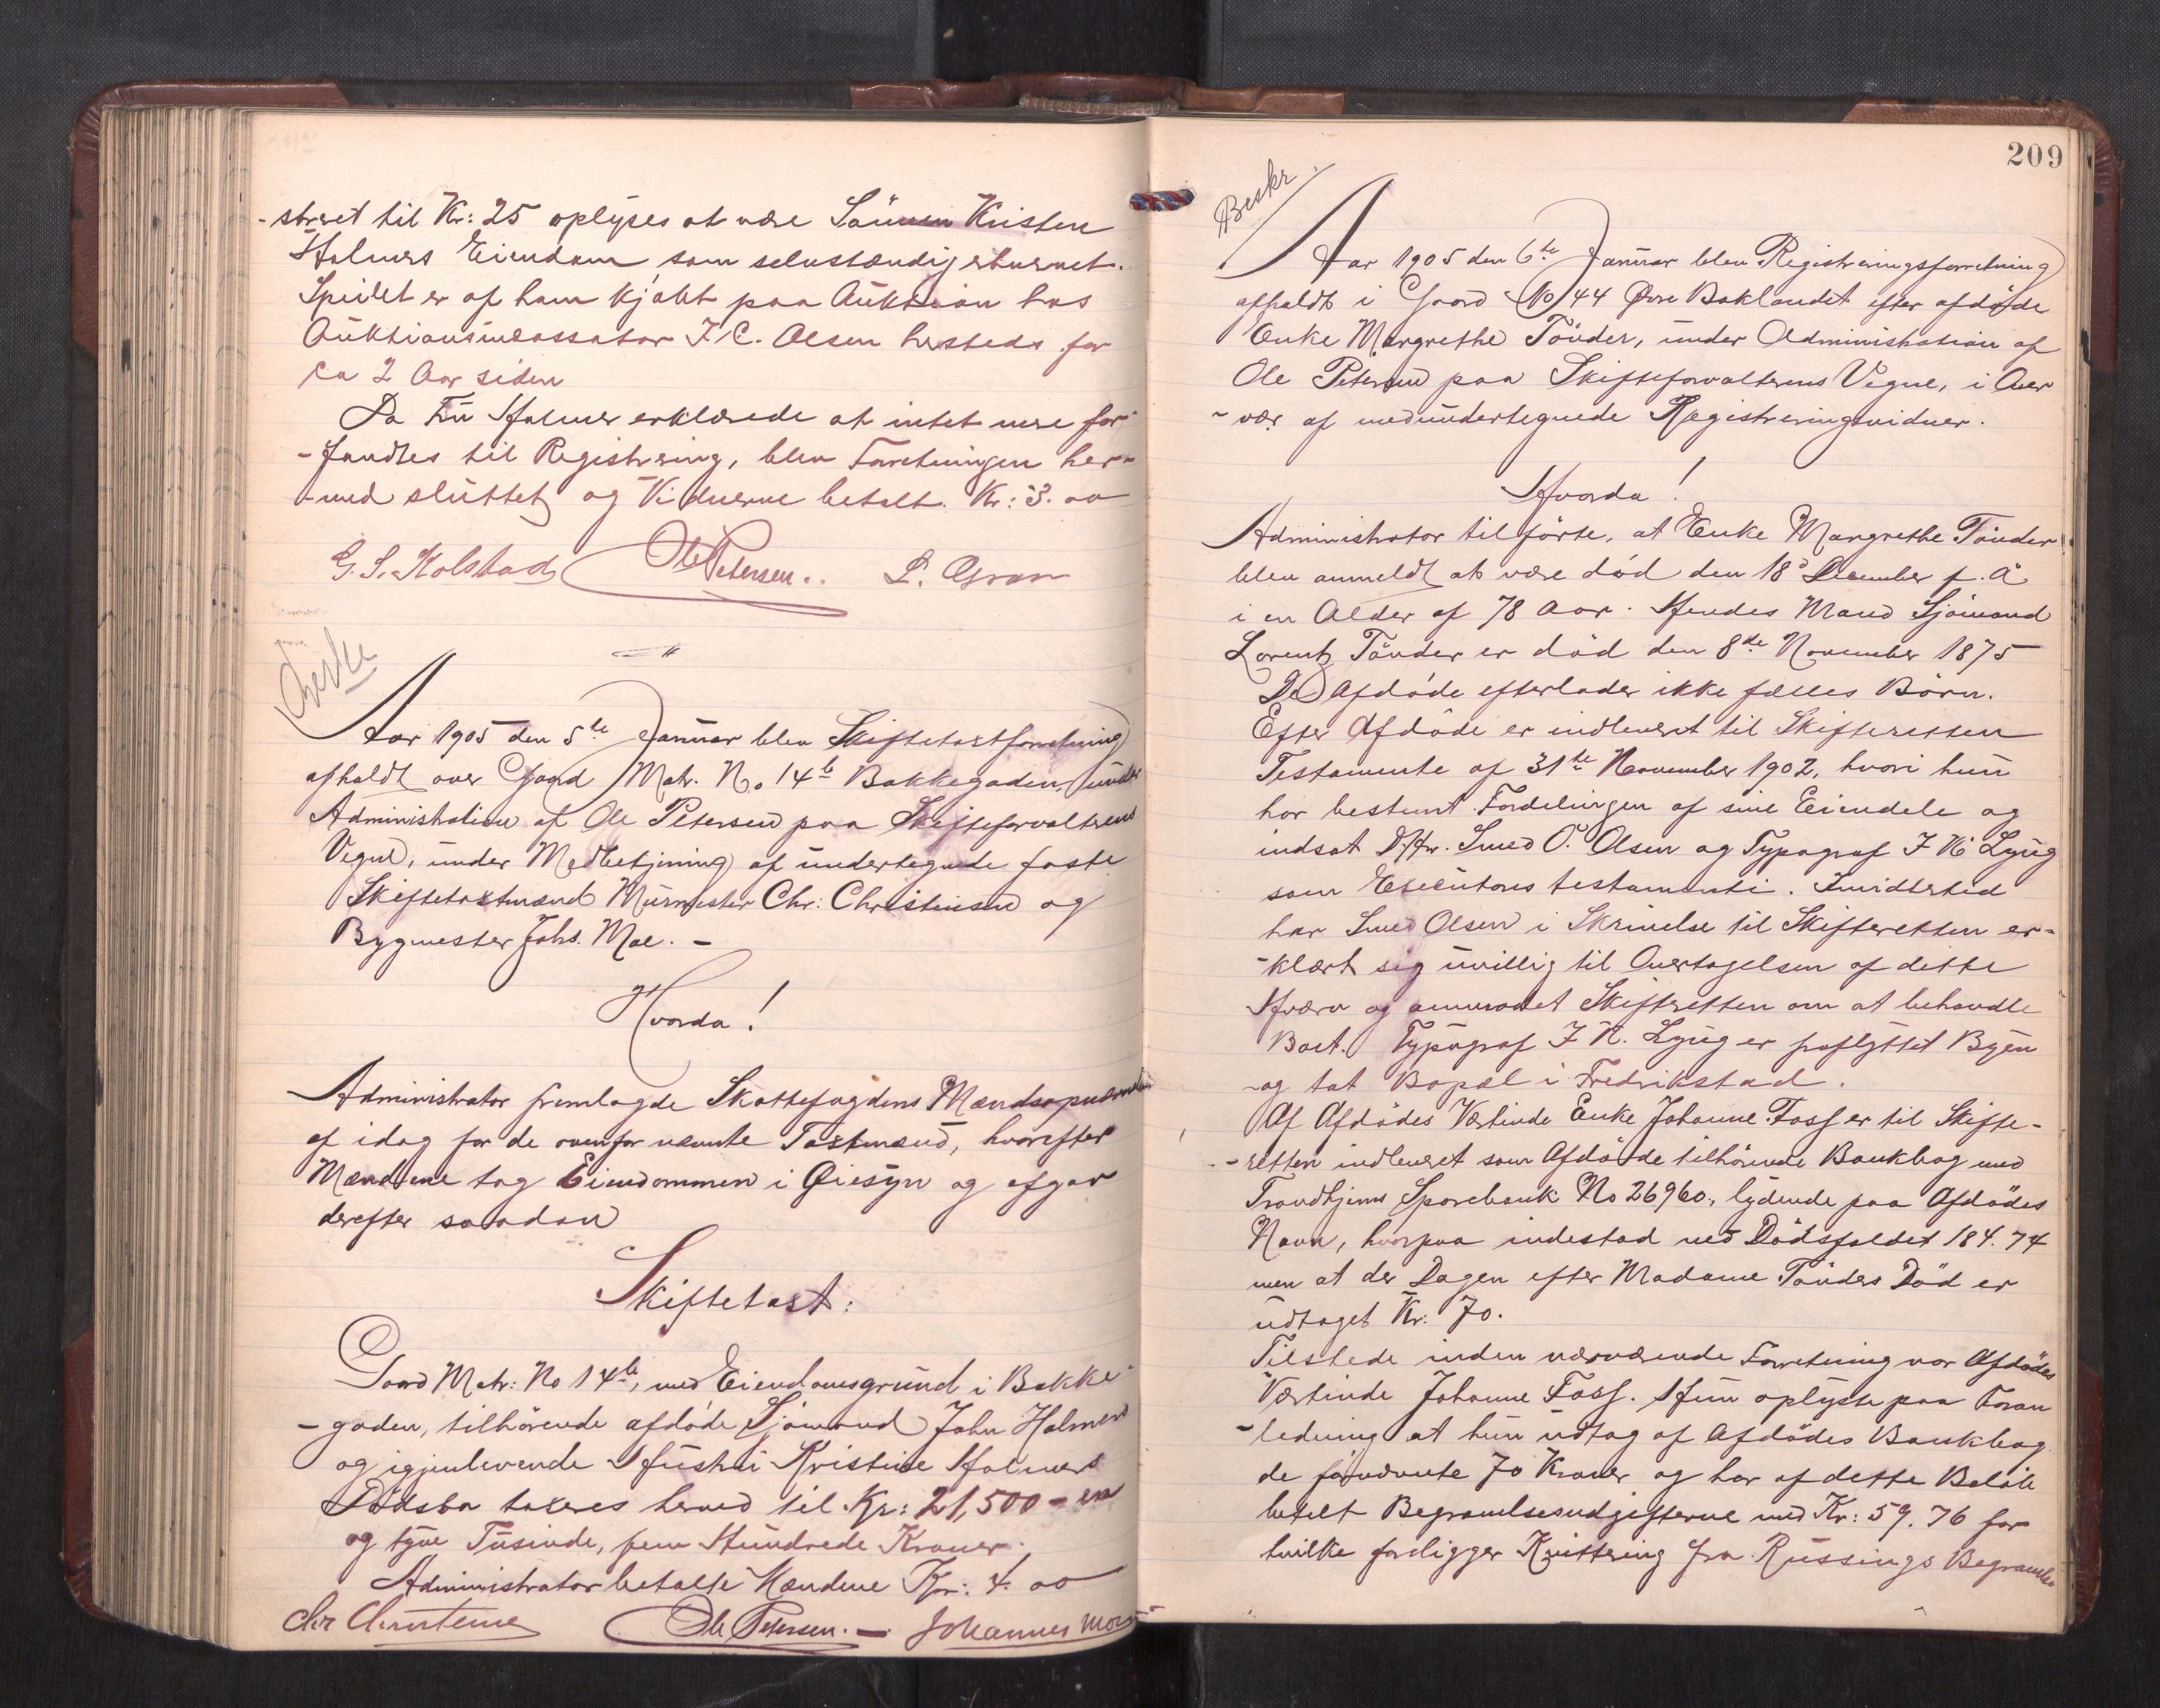 -streret til Kr: 25 oplyses at være Sönnen Kristen
Holmers Eiendom som selvstændig erhvervet.
Speilet er af ham kjøbt paa Auktion hos
Auktionsincassator J. C. Olsen hersteds for
ca 2 Aar siden
Da Fru Holmer erklærede at intet mere for-
-fandtes til Registrering, blev Forretningen her-
-med sluttet og Vidnerne betalt. Kr: 3. oo
G. S. Kolstad Ole Petersen.. L. Gran
Beskr
Aar 1905 den 5te Januar blev Skiftetaxtforretning
afholdt over Gaard Matr. No 14b Bakkegaden, under
Administration af Ole Petersen paa Skifteforvalterens
Vegne, under Medbetjening af undertegnede faste
Skiftetaxtmænd Murmester Chr: Christensen og
Bygmester Johs. Moe. -
Hvorda!
Administrator fremlagde Skattefogdens Mændsopnævnelse
af idag for de ovenfor nævnte Taxtmænd, hvorefter
Mændene tog Eiendommen i Øiesyn og afgav
derefter saadan
Skiftetaxt:
Gaard Matr: No 14b, med Eiendomsgrund i Bakke-
-gaden, tilhörende afdöde Sjömand John Holmers
og igjenlevende Hustru Kristine Holmers
Dödsbo taxeres herved til Kr: 21,500 - en
og tyve Tusinde, fem Hundrede Kroner.
Administrator betalte Mændene Kr: 4. oo
Chr Christensen Ole Petersen. - Johannes Moe
209
Beskr.
Aar 1905 den 6te Januar blev Registreringsforretning
afholdt i Gaard No 44 Øvre Baklandet efter afdöde
Enke Margrethe Tönder, under Administration af
Ole Petersen paa Skifteforvalterens Vegne, i Over
-vær af medundertegnede Registreringsvidner.
Hvorda!
Administrator tilförte, at Enke Margrethe Tönder
blev anmeldt at være död den 18de December f. A.
i en Alder af 78 Aar. Hendes Mand Sjömand
Lorentz Tönder er död den 8de November 1875
De Afdöde efterlader ikke fælles Börn.
Efter Afdöde er indleveret til Skifteretten
Testamente af 31te November 1902, hvori hun
har bestemt Fordelingen af sine Eiendele og
indsat DHr. Smed O. Olsen og Typograf J N Lyng
som Executores testamenti. Imidlertid
har Smed Olsen i Skrivelse til Skifteretten er-
-klært sig uvillig til Overtagelsen af dette
Hverv og anmodet Skifteretten om at behandle
Boet. Typograf J N. Lyng er fraflyttet Byen
-og tat Bopæl i Fredrikstad.
Af Afdödes Værtinde Enke Johanne Foss er til Skifte-
-retten indleveret som Afdöde tilhörende Bankbog med
Trondhjems Sparebank No 26960, lydende paa Afdödes
Navn, hvorpaa indestod ved Dödsfaldet 184.74
men at der Dagen efter Madame Tönders Död er
udtaget Kr: 70.
Tilstede inden nærværende Forretning var Afdödes
Værtinde Johanne Foss. Hun oplyste paa Foran
-ledning at hun udtog af Afdödes Bankbog
de förnævnte 70 Kroner og har af dette Belöb
betalt Begravelsesudgifterne med Kr: 59.76 for
hvilke foreligger Kvittering fra Russings Begravelses